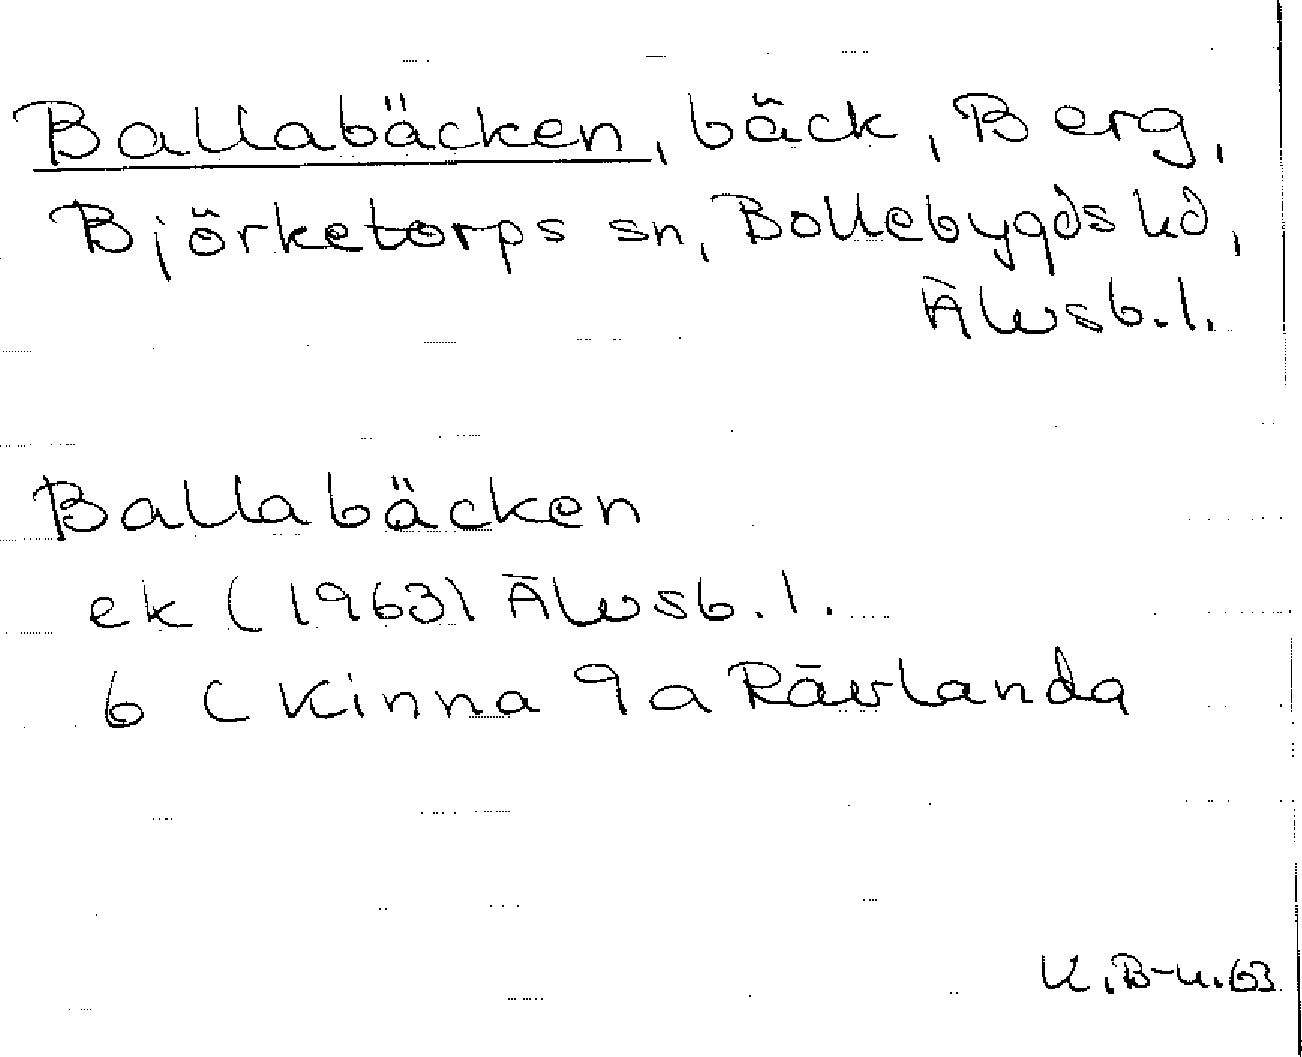 Ballabäcken, bäck, Berg,
Björketorps sn, Bollebygds hd,
Älvsb. l.
Ballabäcken
ek (1963) Älvsb. l.
6 C Kinna 9a Rävlanda
K.B-n.63